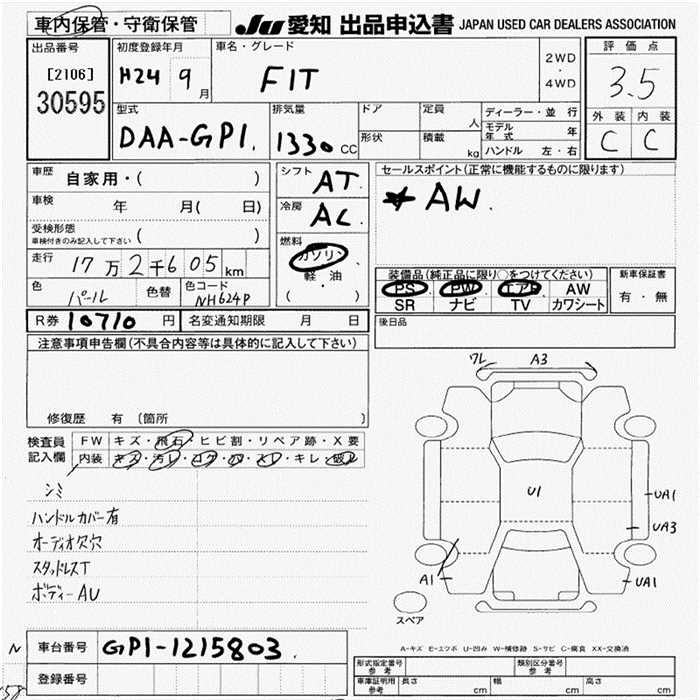 車内保管・守衛保管
JU 愛知 出品申込書 JAPAN USED CAR DEALERS ASSOCIATION
出品番号
[2106]
30595
初度登録年月
H24 9月
車名・グレード
FIT
2WD
・
4WD
評価点
3.5
外装 内装
C C
型式
DAA-GP1.
排気量
1330 CC
ドア
形状
定員
人
積載
kg
ディーラー・並行
モデル年式 年
ハンドル 左・右
車歴 自家用・( )
車検 年 月( 日)
受検形態
車検付きのみ記入して下さい ( )
走行 17万2千605km
色 パール 色替 色コード NH624P
シフト AT
冷房 AC
燃料
ガソリン
軽・油
( )
セールスポイント(正常に機能するものに限ります)
★AW.
装備品(純正品に限り○をつけてください)
PS PW エアB AW
SR ナビ TV カワシート
新車保証書
有・無
R券 10710円 名変通知期限 月 日
後日品
注意事項申告欄(不具合内容等は具体的に記入して下さい)
修復歴 有 〔箇所 〕
検査員記入欄
FW キズ・飛石・ヒビ割・リペア跡・X要
内装 キズ・汚レ・コゲ・穴・スレ・キレ・破レ
シミ
ハンドルカバー有
オーディオ欠穴
スタッドレスT
ボディーAU
ワレ A3
U1
UA1
UA3
A1
UA1
スペア
A-キズ E-エクボ U-凹み W-補修跡 S-サビ C-腐食 XX-交換済
N
車台番号 GP1-1215803
登録番号
形式指定番号 参考
類別区分番号 参考
車庫証明用 参考 長さ cm 幅 cm 高さ cm